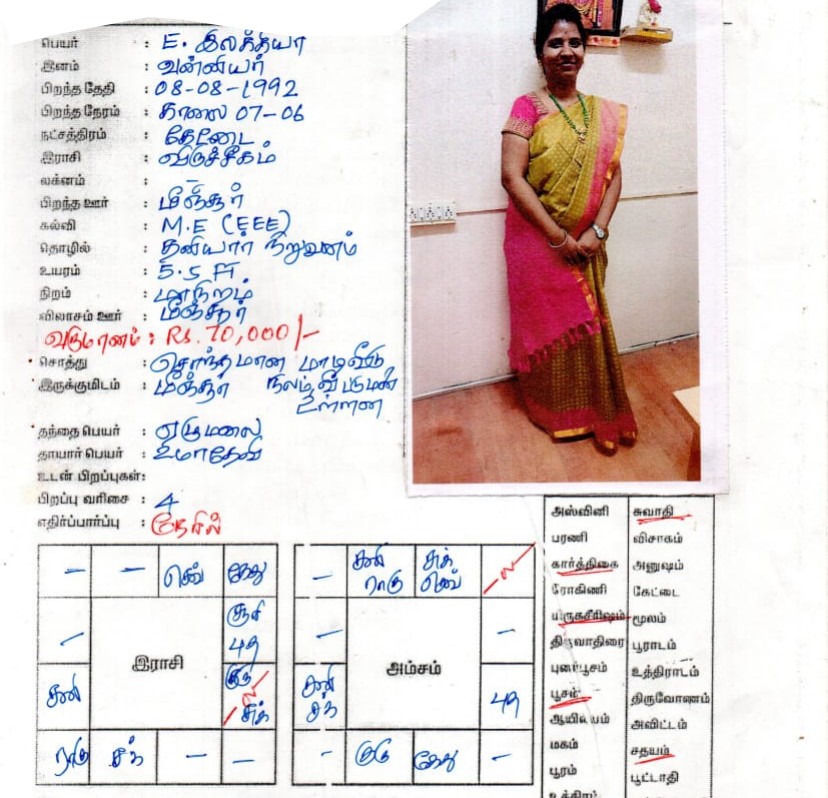 பெயர் : E. இலக்கியா
இனம் : வன்னியர்
பிறந்த தேதி : 08-08-1992
பிறந்த நேரம் : காலை 07-06
நட்சத்திரம் : கேட்டை
இராசி : விருச்சீகம்
லக்னம் : -
பிறந்த ஊர் : மீஞ்சூர்
கல்வி : M.E (EEE)
தொழில் : தனியார் நிறுவனம்
உயரம் : 5.5 ft
நிறம் : மாநிறம்
விலாசம் ஊர் : மீஞ்சூர்
வருமானம் : Rs. 70,000/-
சொத்து : சொந்தமான மாடிவீடு
இருக்குமிடம் : மீஞ்சூர் நிலம், வீட்டுமண்
உள்ளன
தந்தை பெயர் : ஏழுமலை
தாயார் பெயர் : உமாதேவி
உடன் பிறப்புகள்:
பிறப்பு வரிசை : 4
எதிர்ப்பார்ப்பு : நேரில்
- - செவ் கேது
- சூரி
புத
இராசி
சனி குரு
ல
சுக்
ராகு சந் - -
- சனி
ராகு சுக்
செவ் ல
- -
அம்சம்
சூரி
சந் புத
- குரு கேது -
அஸ்வினி சுவாதி
பரணி விசாகம்
கார்த்திகை அனுஷம்
ரோகிணி கேட்டை
மிருகசீரிஷம் மூலம்
திருவாதிரை பூராடம்
புனர்பூசம் உத்திராடம்
பூசம் திருவோணம்
ஆயில்யம் அவிட்டம்
மகம் சதயம்
பூரம் பூட்டாதி
உத்திரம்